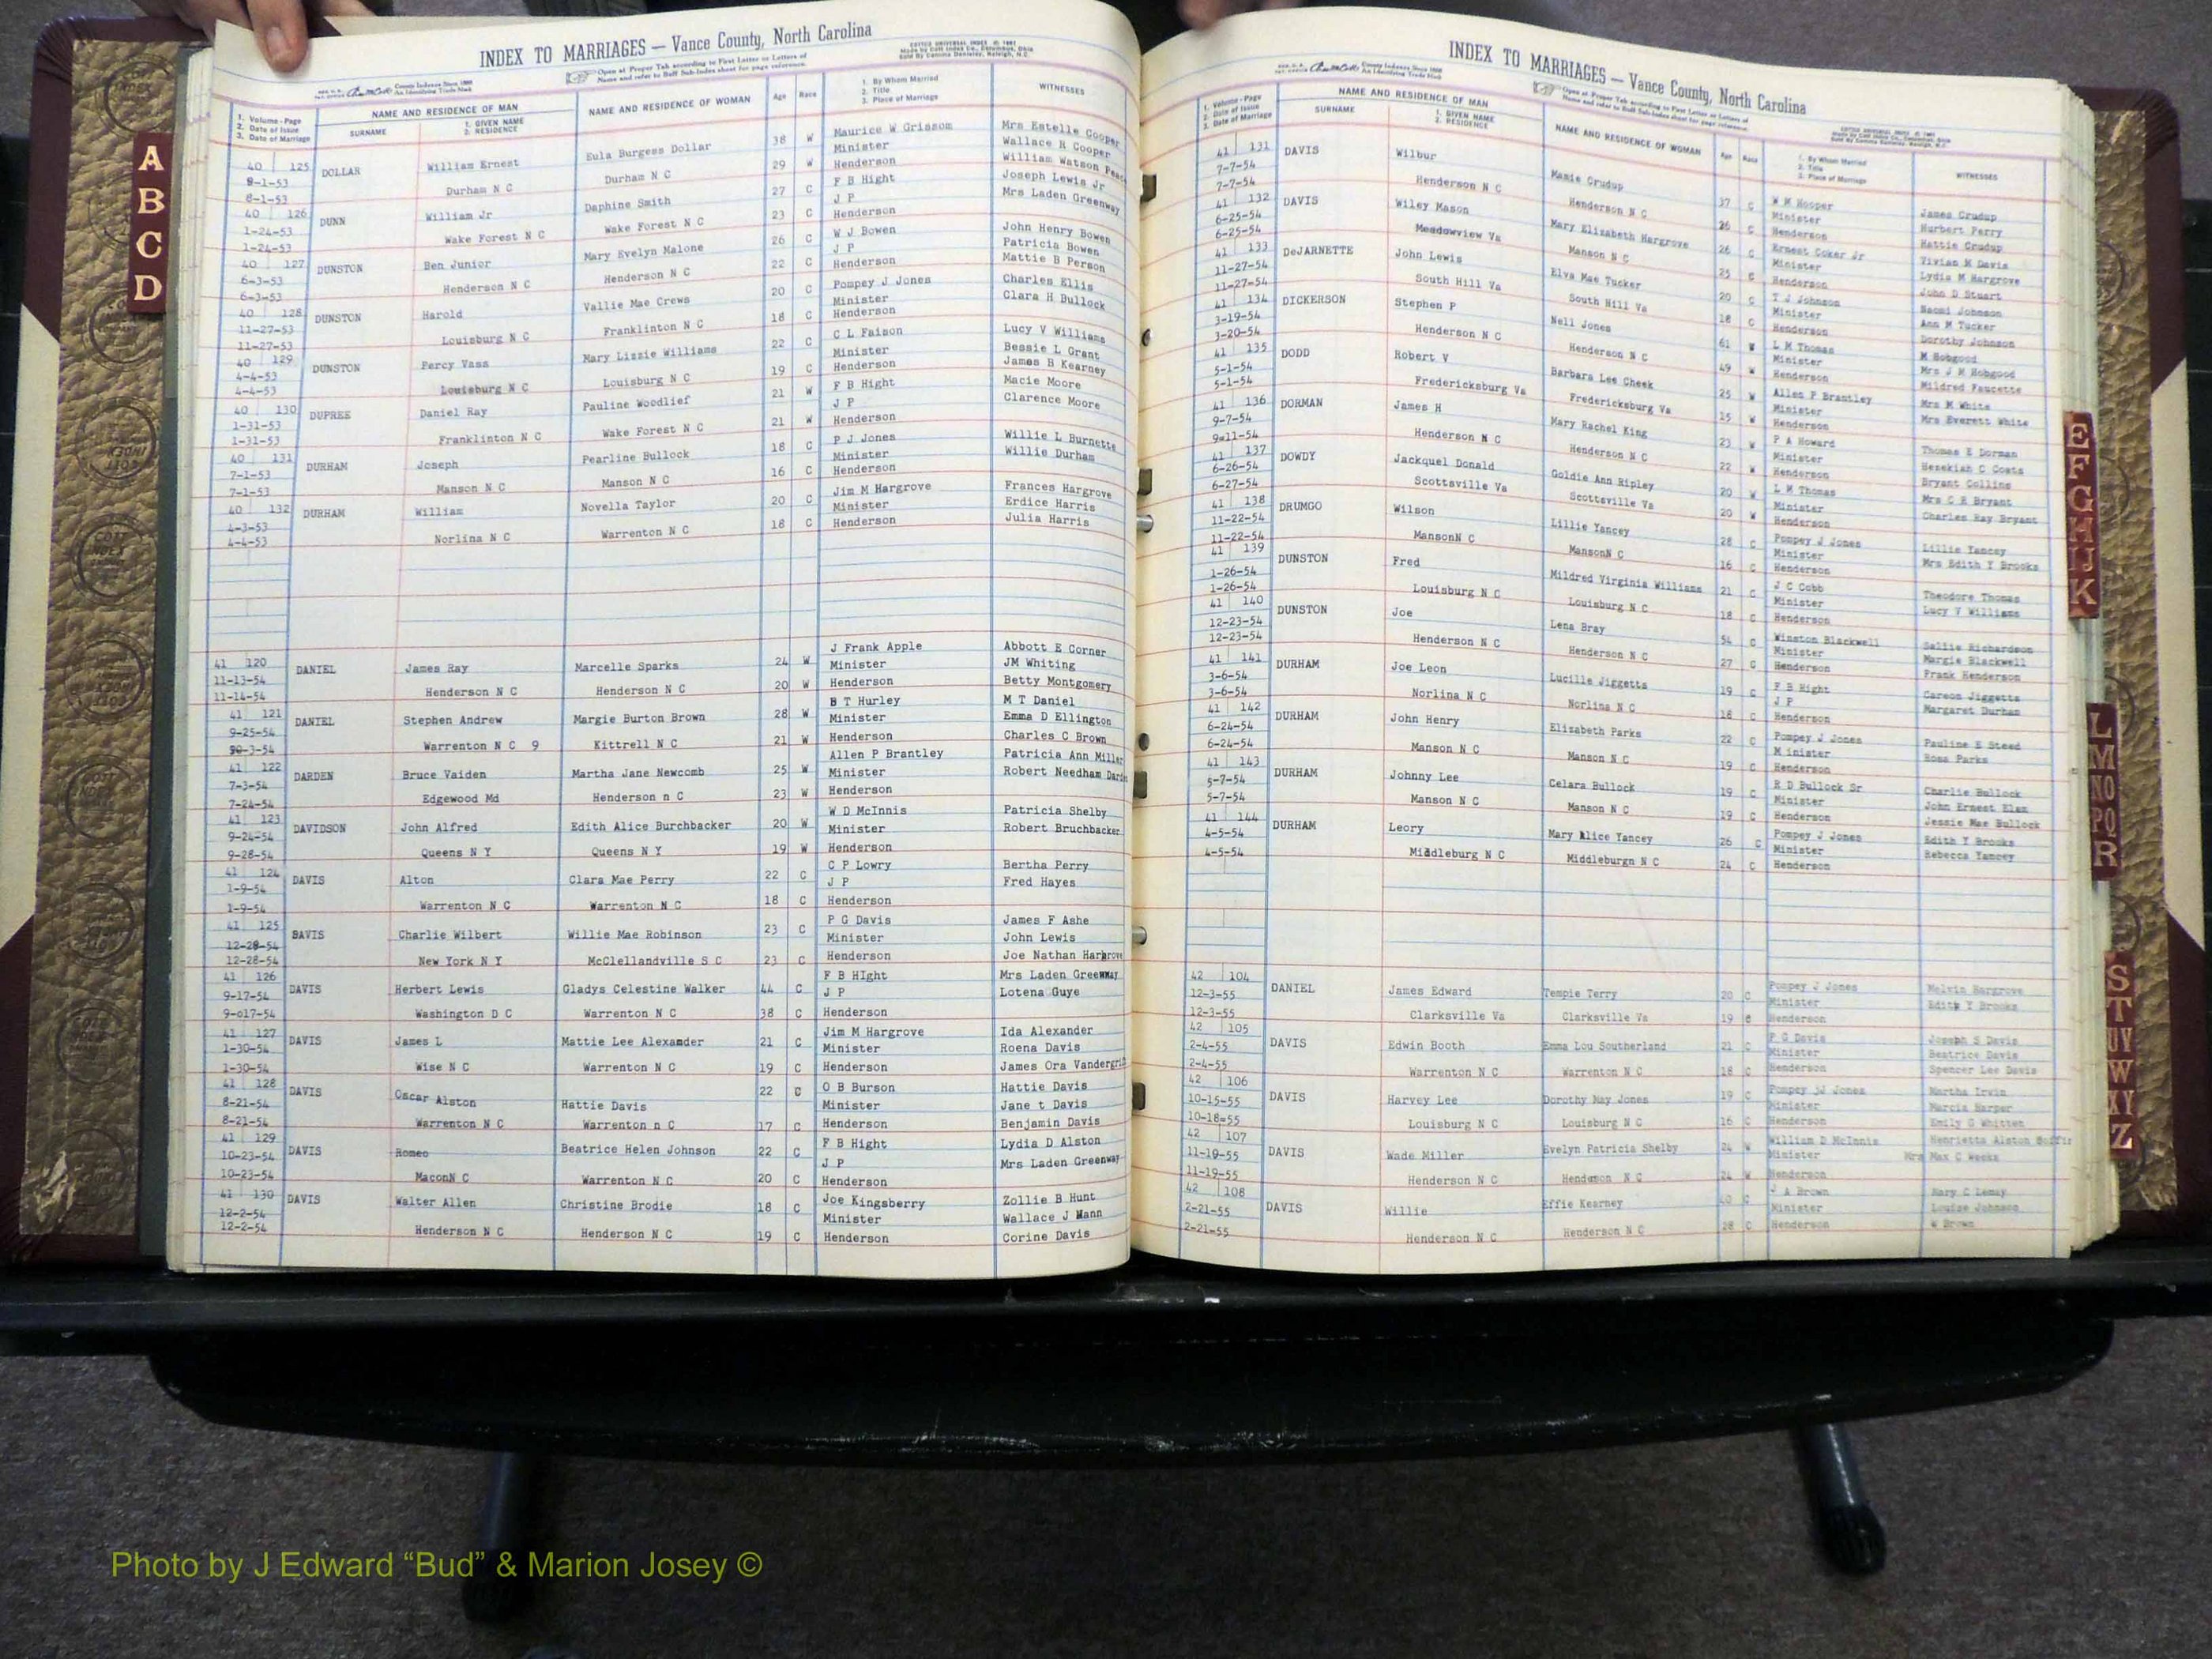 A
B
C
D
INDEX TO MARRIAGES — Vance County, North Carolina
Open at Proper Tab according to First Letter or Letters of
Name and refer to Buff Sub-Index sheet for page reference.
County Indexes Since 1888
An Identifying Trade Mark
1. Volume - Page
2. Date of Issue
3. Date of Marriage
NAME AND RESIDENCE OF MAN
SURNAME
1. GIVEN NAME
2. RESIDENCE
NAME AND RESIDENCE OF WOMAN
Age
Race
1. By Whom Married
2. Title
3. Place of Marriage
WITNESSES
40 125 DOLLAR William Ernest Eula Burgess Dollar 38 W Maurice W Grissom Mrs Estelle Cooper
8-1-53 Durham N C Durham N C 29 W Minister Wallace R Cooper
8-1-53 Henderson William Watson
40 126 DUNN William Jr Daphine Smith 27 C F B Hight Joseph Lewis Jr
1-24-53 Wake Forest N C Wake Forest N C 23 C J P Mrs Laden Greenway
1-24-53 Henderson
40 127 DUNSTON Ben Junior Mary Evelyn Malone 26 C W J Bowen John Henry Bowen
6-3-53 Henderson N C Henderson N C 22 C J P Patricia Bowen
6-3-53 Henderson Mattie B Person
40 128 DUNSTON Harold Vallie Mae Crews 20 C Pompey J Jones Charles Ellis
11-27-53 Louisburg N C Franklinton N C 18 C Minister Clara H Bullock
11-27-53 Henderson
40 129 DUNSTON Percy Vass Mary Lizzie Williams 22 C C L Faison Lucy V Williams
4-4-53 Louisburg N C Louisburg N C 19 C Minister Bessie L Grant
4-4-53 Henderson James B Kearney
40 130 DUPREE Daniel Ray Pauline Woodlief 21 W F B Hight Macie Moore
1-31-53 Franklinton N C Wake Forest N C 21 W J P Clarence Moore
1-31-53 Henderson
40 131 DURHAM Joseph Pearline Bullock 18 C P J Jones Willie L Burnette
7-1-53 Manson N C Manson N C 16 C Minister Willie Durham
7-1-53 Henderson
40 132 DURHAM William Novella Taylor 20 C Jim M Hargrove Frances Hargrove
4-3-53 Norlina N C Warrenton N C 18 C Minister Erdice Harris
4-4-53 Henderson Julia Harris
41 120 DANIEL James Ray Marcelle Sparks 24 W J Frank Apple Abbott E Corner
11-13-54 Henderson N C Henderson N C 20 W Minister JM Whiting
11-14-54 Henderson Betty Montgomery
41 121 DANIEL Stephen Andrew Margie Burton Brown 28 W B T Hurley M T Daniel
9-25-54 Warrenton N C 9 Kittrell N C 21 W Minister Emma D Ellington
Henderson Charles C Brown
41 122 DARDEN Bruce Vaiden Martha Jane Newcomb 25 W Allen P Brantley Patricia Ann Miller
7-3-54 Edgewood Md Henderson n C 23 W Minister Robert Needham
7-24-54 Henderson
41 123 DAVIDSON John Alfred Edith Alice Burchbacker 20 W W D McInnis Patricia Shelby
9-24-54 Queens N Y Queens N Y 19 W Minister Robert Bruchbacker
9-28-54 Henderson
41 124 DAVIS Alton Clara Mae Perry 22 C C P Lowry Bertha Perry
1-9-54 Warrenton N C Warrenton N C 18 C J P Fred Hayes
1-9-54 Henderson
41 125 Charlie Wilbert Willie Mae Robinson 23 C P G Davis James F Ashe
12-28-54 New York N Y McClellandville S C 23 C Minister John Lewis
12-28-54 Henderson Joe Nathan Hargrove
41 126 DAVIS Herbert Lewis Gladys Celestine Walker 44 C F B HIght Mrs Laden Greenway
9-17-54 Washington D C Warrenton N C 38 C J P Lotena Guye
9-017-54 Henderson
41 127 DAVIS James L Mattie Lee Alexander 21 C Jim M Hargrove Ida Alexander
1-30-54 Wise N C Warrenton N C 19 C Minister Roena Davis
1-30-54 Henderson James Ora
41 128 DAVIS Oscar Alston Hattie Davis 22 C O B Burson Hattie Davis
8-21-54 Warrenton N C Warrenton n C 17 C Minister Jane t Davis
8-21-54 Henderson Benjamin Davis
41 129 DAVIS Romeo Beatrice Helen Johnson 22 C F B Hight Lydia D Alston
10-23-54 MaconN C Warrenton N C 20 C J P Mrs Laden Greenway
10-23-54 Henderson
41 130 DAVIS Walter Allen Christine Brodie 18 C Joe Kingsberry Zollie B Hunt
12-2-54 Henderson N C Henderson N C 19 C Minister Wallace J Mann
12-2-54 Henderson Corine Davis
INDEX TO MARRIAGES — Vance County, North Carolina
Open at Proper Tab according to First Letter or Letters of
Name and refer to Buff Sub-Index sheet for page reference.
County Indexes Since 1888
An Identifying Trade Mark
1. Volume - Page
2. Date of Issue
3. Date of Marriage
NAME AND RESIDENCE OF MAN
SURNAME
1. GIVEN NAME
2. RESIDENCE
NAME AND RESIDENCE OF WOMAN
Age
Race
1. By Whom Married
2. Title
3. Place of Marriage
WITNESSES
41 131 DAVIS Wilbur Mamie Crudup 37 C W M Hooper James Crudup
7-7-54 Henderson N C Henderson N C 26 C Minister Hurbert Perry
7-7-54 Henderson Hattie Crudup
41 132 DAVIS Wiley Mason Mary Elizabeth Hargrove 26 C Ernest Coker Jr Vivian M Davis
6-25-54 Meadowview Va Manson N C 25 C Minister Lydia M Hargrove
6-25-54 Henderson John D Stuart
41 133 DeJARNETTE John Lewis Elva Mae Tucker 20 C T J Johnson Naomi Johnson
11-27-54 South Hill Va South Hill Va 18 C Minister Ann M Tucker
11-27-54 Henderson Dorothy Johnson
41 134 DICKERSON Stephen P Nell Jones 61 W L M Thomas M Hobgood
3-19-54 Henderson N C Henderson N C 49 W Minister Mrs J M Hobgood
3-20-54 Henderson Mildred Faucette
41 135 DODD Robert V Barbara Lee Cheek 25 W Allen P Brantley Mrs M White
5-1-54 Fredericksburg Va Fredericksburg Va 15 W Minister Mrs Everett White
5-1-54 Henderson
41 136 DORMAN James H Mary Rachel King 23 W P A Howard Thomas E Dorman
9-7-54 Henderson N C Henderson N C 22 W Minister Hezekiah C Coats
9-11-54 Henderson Bryant Collins
41 137 DOWDY Jackquel Donald Goldie Ann Ripley 20 W L M Thomas Mrs C R Bryant
6-26-54 Scottsville Va Scottsville Va 20 W Minister Charles Ray Bryant
6-27-54 Henderson
41 138 DRUMGO Wilson Lillie Yancey 28 C Pompey J Jones Lillie Yancey
11-22-54 MansonN C MansonN C 16 C Minister Mrs Edith Y Brooks
11-22-54 Henderson
41 139 DUNSTON Fred Mildred Virginia Williams 21 C J C Cobb Theodore Thomas
1-26-54 Louisburg N C Louisburg N C 18 C Minister Lucy V Williams
1-26-54 Henderson
41 140 DUNSTON Joe Lena Bray 54 C Winston Blackwell Sallie Richardson
12-23-54 Henderson N C Henderson N C 27 C Minister Margie Blackwell
12-23-54 Henderson Frank Henderson
41 141 DURHAM Joe Leon Lucille Jiggetts 19 C F B Hight Carson Jiggetts
3-6-54 Norlina N C Norlina N C 18 C J P Margaret Durham
3-6-54 Henderson
41 142 DURHAM John Henry Elizabeth Parks 22 C Pompey J Jones Pauline E Steed
6-24-54 Manson N C Manson N C 19 C M inister Rosa Parks
6-24-54 Henderson
41 143 DURHAM Johnny Lee Celara Bullock 19 C R D Bullock Sr Charlie Bullock
5-7-54 Manson N C Manson N C 19 C Minister John Ernest Elam
5-7-54 Henderson Jessie Mae Bullock
41 144 DURHAM Leory Mary Alice Yancey 26 C Pompey J Jones Edith Y Brooks
4-5-54 Middleburg N C Middleburgn N C 24 C Minister Rebecca Yancey
4-5-54 Henderson
42 104 DANIEL James Edward Tempie Terry 20 C Pompey J Jones Melvin Hargrove
12-3-55 Clarksville Va Clarksville Va 19 Minister Edith Y Brooks
12-3-55 Henderson
42 105 DAVIS Edwin Booth Emma Lou Southerland 21 C P G Davis Joseph S Davis
2-4-55 Warrenton N C Warrenton N C 18 C Minister Beatrice Davis
2-4-55 Henderson Spencer Lee Davis
42 106 DAVIS Harvey Lee Dorothy May Jones 19 C Pompey Jones Martha Irwin
10-15-55 Louisburg N C Louisburg N C 16 C Minister Marcia Harper
10-18-55 Henderson Emily G Whitten
42 107 DAVIS Wade Miller Evelyn Patricia Shelby 24 W William D McInnis Henrietta Alston
11-10-55 Henderson N C N C 24 W Minister Mrs Max C Weeks
11-19-55 Henderson
42 108 DAVIS Willie Effie Kearney 40 C J A Brown Mary C Lemay
2-21-55 Henderson N C Henderson N C 28 C Minister Louise Johnson
2-21-55 Henderson W Brown
E
F
G
H
IJ
K
L
M
NO
PQ
R
S
T
UV
W
XY
Z
Photo by J Edward “Bud” & Marion Josey ©